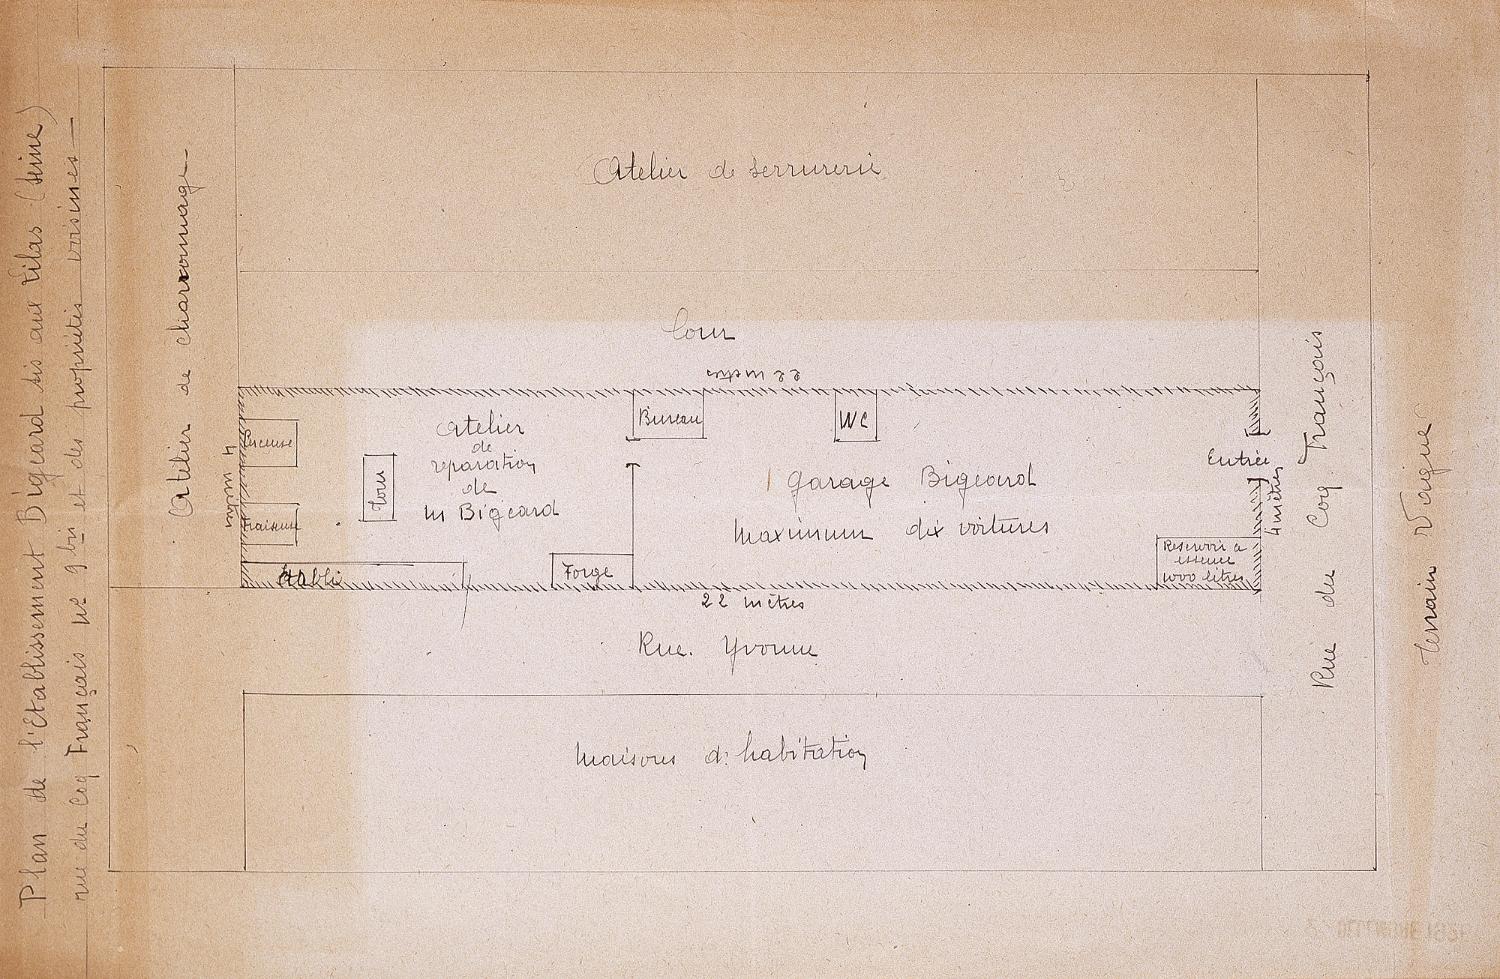 Plan de l'Etablissement Bigeard sis aux Lilas (Seine)
rue du Coq Français No 9 bis et des propriétés voisines
Atelier de charronnage
Atelier de serrurerie
Cour
22 mètres
4 mètres
Perceuse
Fraiseuse
Etabli
Tour
atelier
de
réparation
de
M Bigeard
Forge
Bureau
WC
garage Bigeard
Maximum dix voitures
Entrée
4 mètres
Reservoir à
essence
1000 litres
22 mètres
Rue Yvonne
Maisons d'habitation
Rue du Coq Français
Terrain Vague